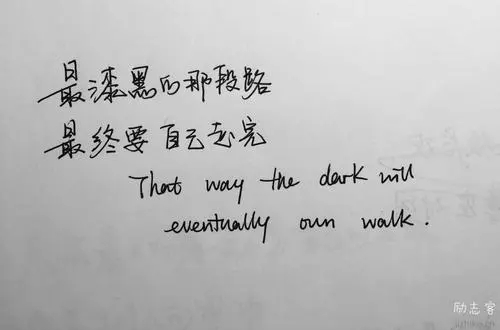 最漆黑的那段路
最终要自己走完
That way the dark will
eventually own walk.
励志客